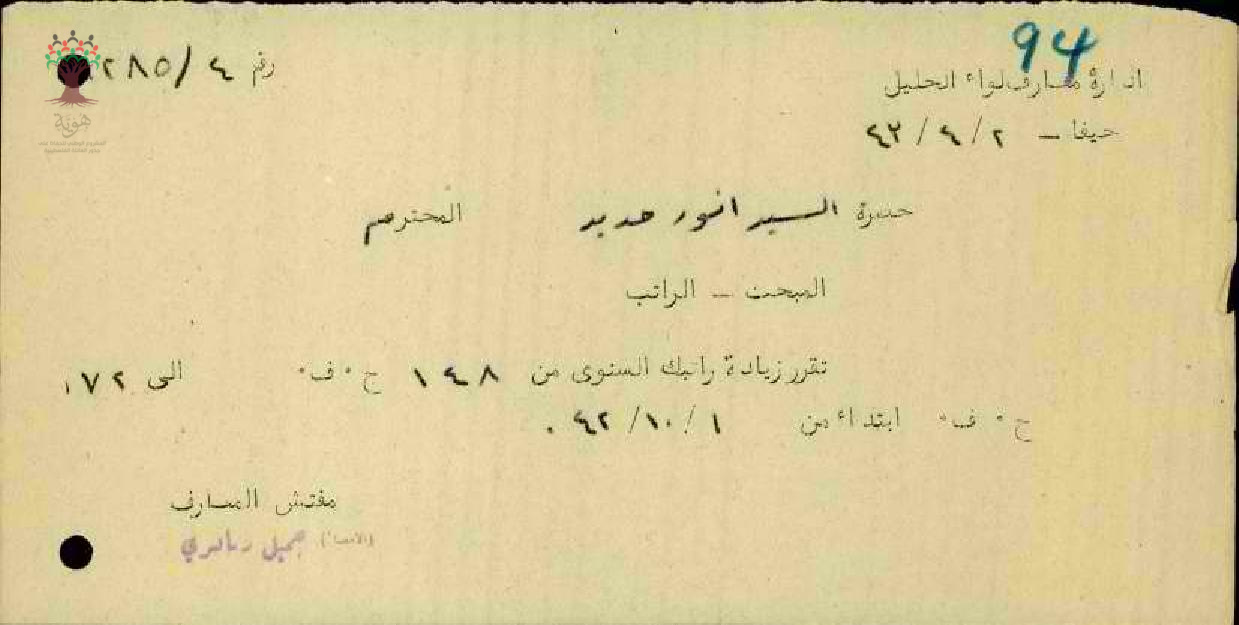 94
ادارة معارف لواء الجليل
رقم ٤/٢٨٥
حيفا – ٤٣/٤/٢
حضرة السيد انور حديد المحترم
المبحث – الراتب
تقرر زيادة راتبك السنوى من ١٤٨ ج٠ف٠ الى ١٧٢
ج٠ف٠ ابتداء من ٤٢/١٠/١ ٠
مفتش المعارف
(الامضاء) جميل
هوية